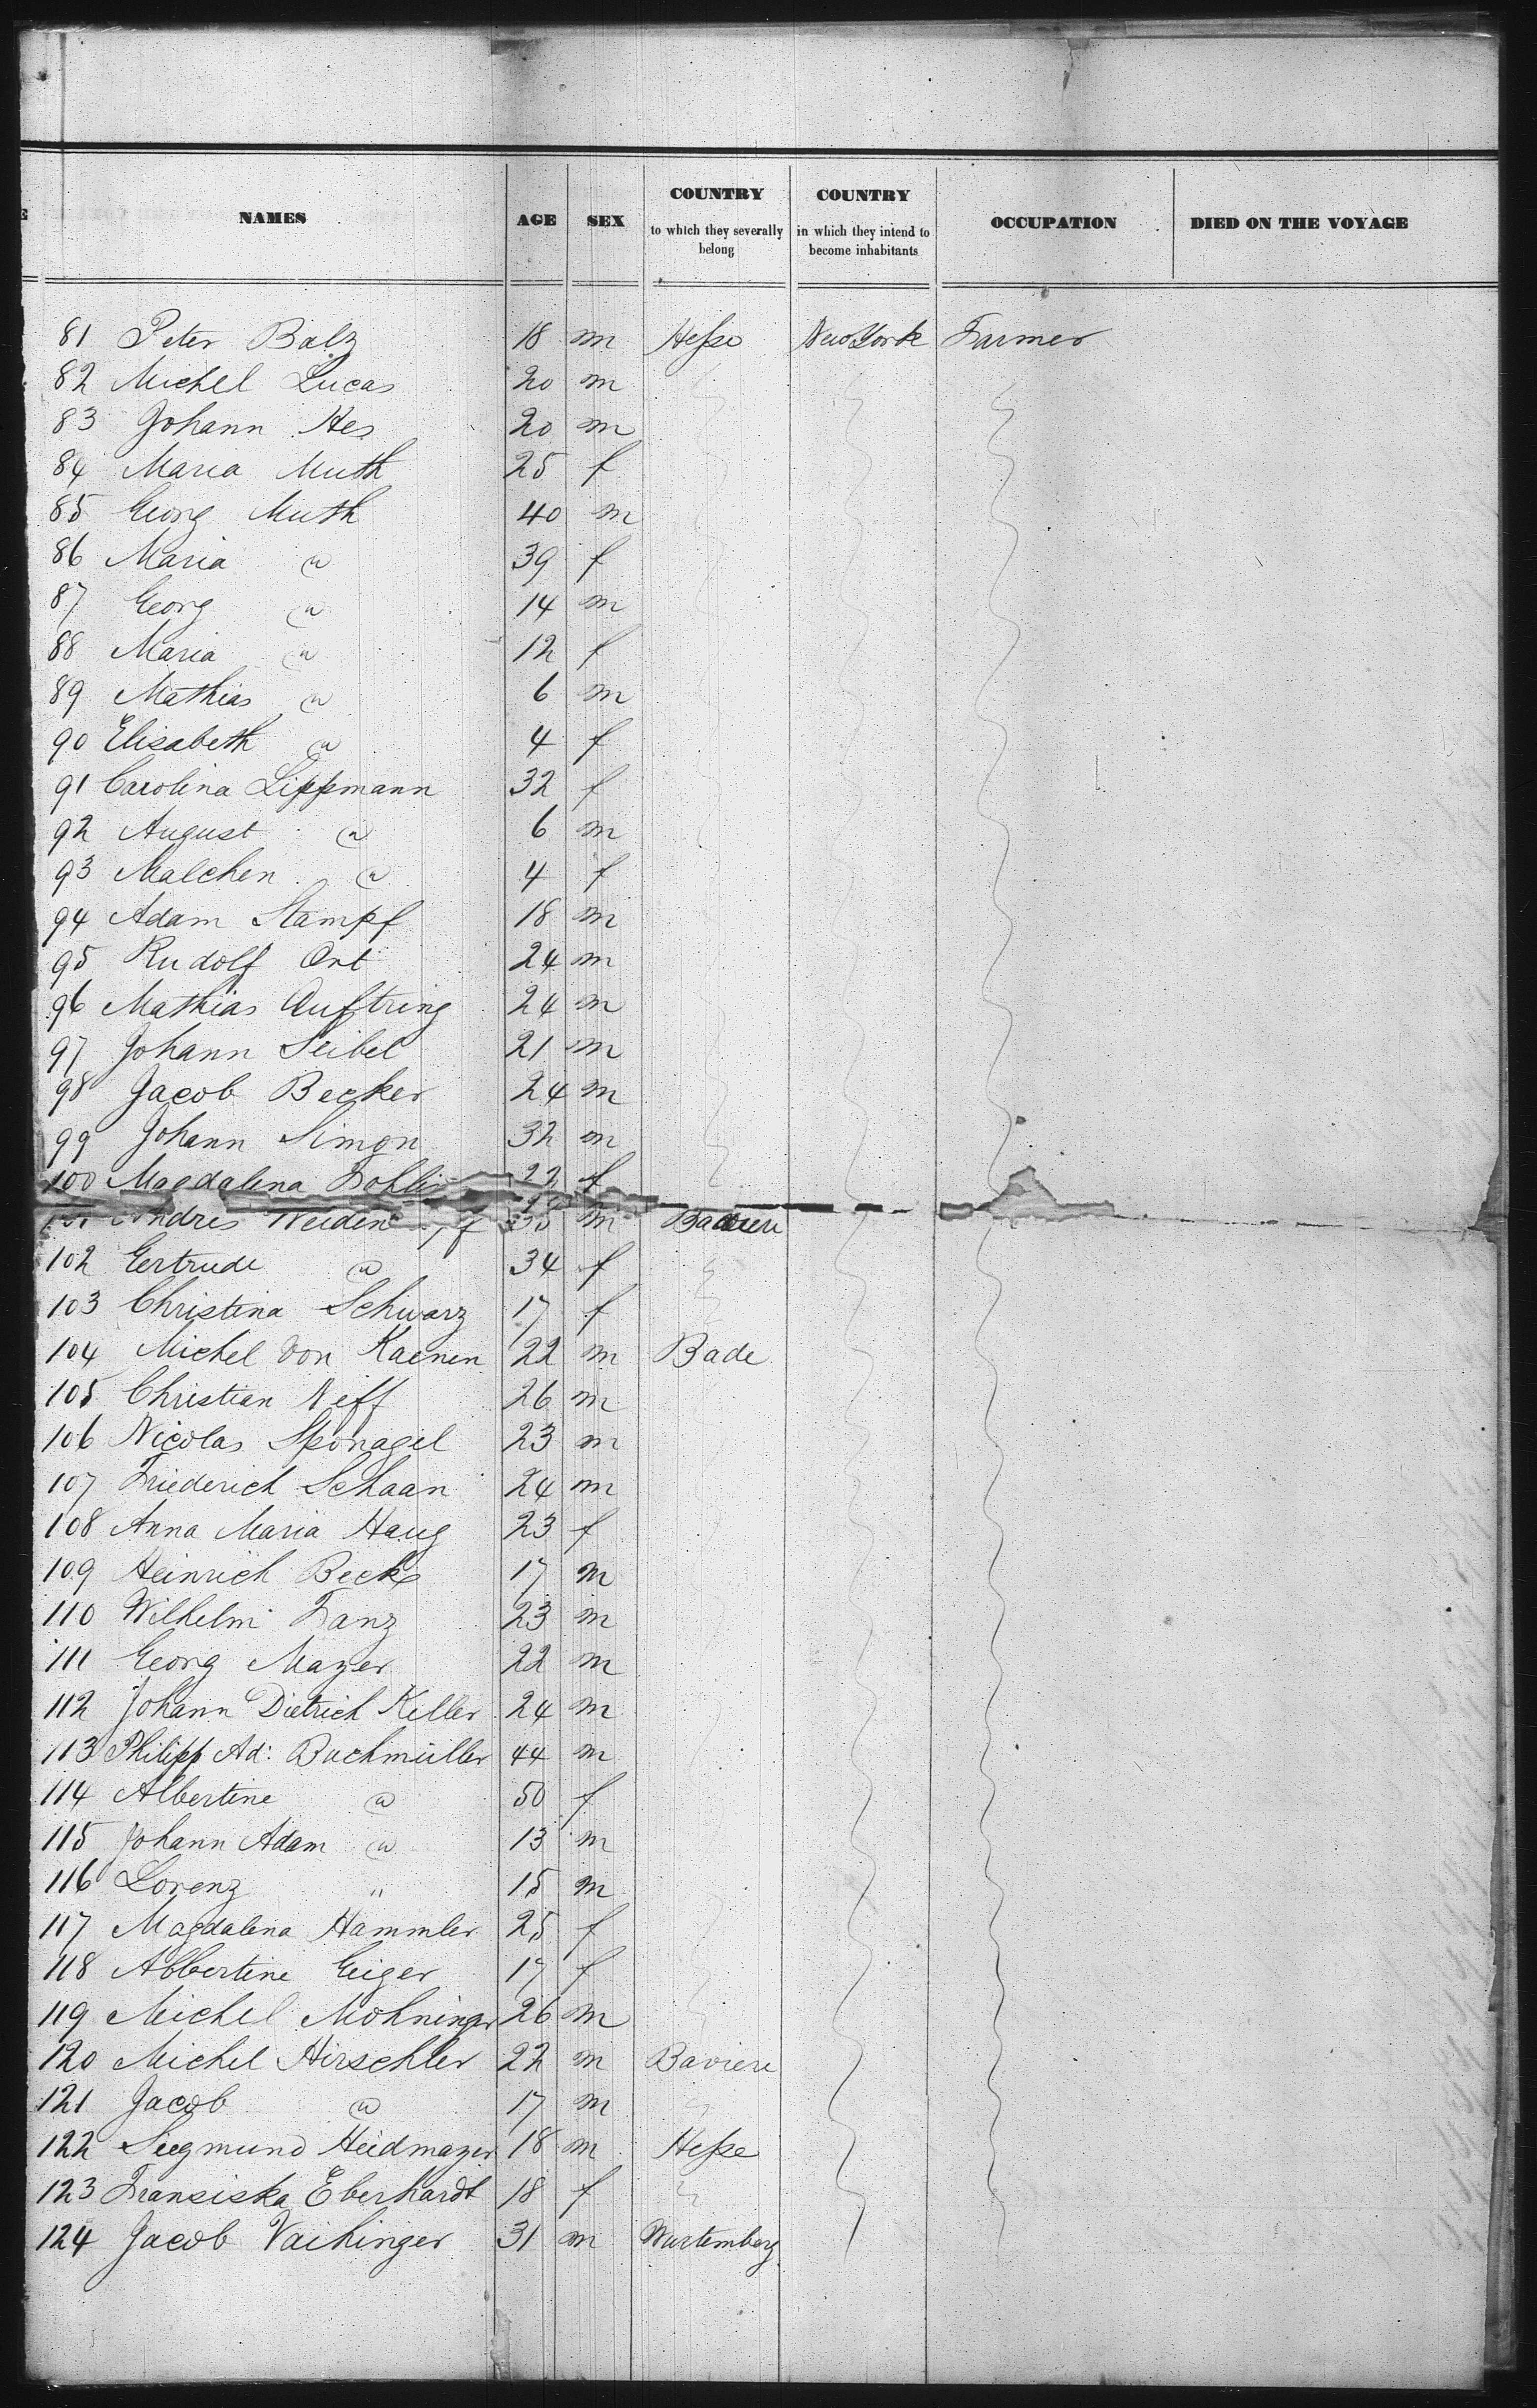 E
NAMES AGE SEX COUNTRY to which they severally belong COUNTRY in which they intend to become inhabitants OCCUPATION DIED ON THE VOYAGE
81 Peter Balz 18 m Hesse New York Farmer
82 Michel Lucas 20 m
83 Johann Hes 20 m
84 Maria Muth 25 f
85 Georg Muth 40 m
86 Maria " 39 f
87 Georg " 14 m
88 Maria " 12 f
89 Mathias " 6 m
90 Elisabeth " 4 f
91 Carolina Lippmann 32 f
92 August " 6 m
93 Malchen " 4 f
94 Adam Stampf 18 m
95 Rudolf Ort 24 m
96 Mathias Auftring 24 m
97 Johann Seibel 21 m
98 Jacob Becker 24 m
99 Johann Simon 32 m
100 Magdalena 22 f
Andres m Baviere
102 Gertrude " 34 f
103 Christina Schwarz 17 f
104 Michel von Kaenen 22 m Bade
105 Christian Neff 26 m
106 Nicolas Sponagel 23 m
107 Friederich Schaan 24 m
108 Anna Maria Haug 23 f
109 Heinrich Beck 17 m
110 Wilhelm Franz 23 m
111 Georg Mayer 22 m
112 Johann Dietrich Keller 24 m
113 Philipp Ad: Bachmüller 44 m
114 Albertine " 50 f
115 Johann Adam " 13 m
116 Lorenz " 15 m
117 Magdalena Hammler 25 f
118 Albertine Geiger 17 f
119 Michel Mohninger 26 m
120 Michel Hirschler 22 m Baviere
121 Jacob " 17 m
122 Siegmund Heidmayer 18 m Hesse
123 Fransiska Eberhardt 18 f
124 Jacob Vaihinger 31 m Wurtemberg